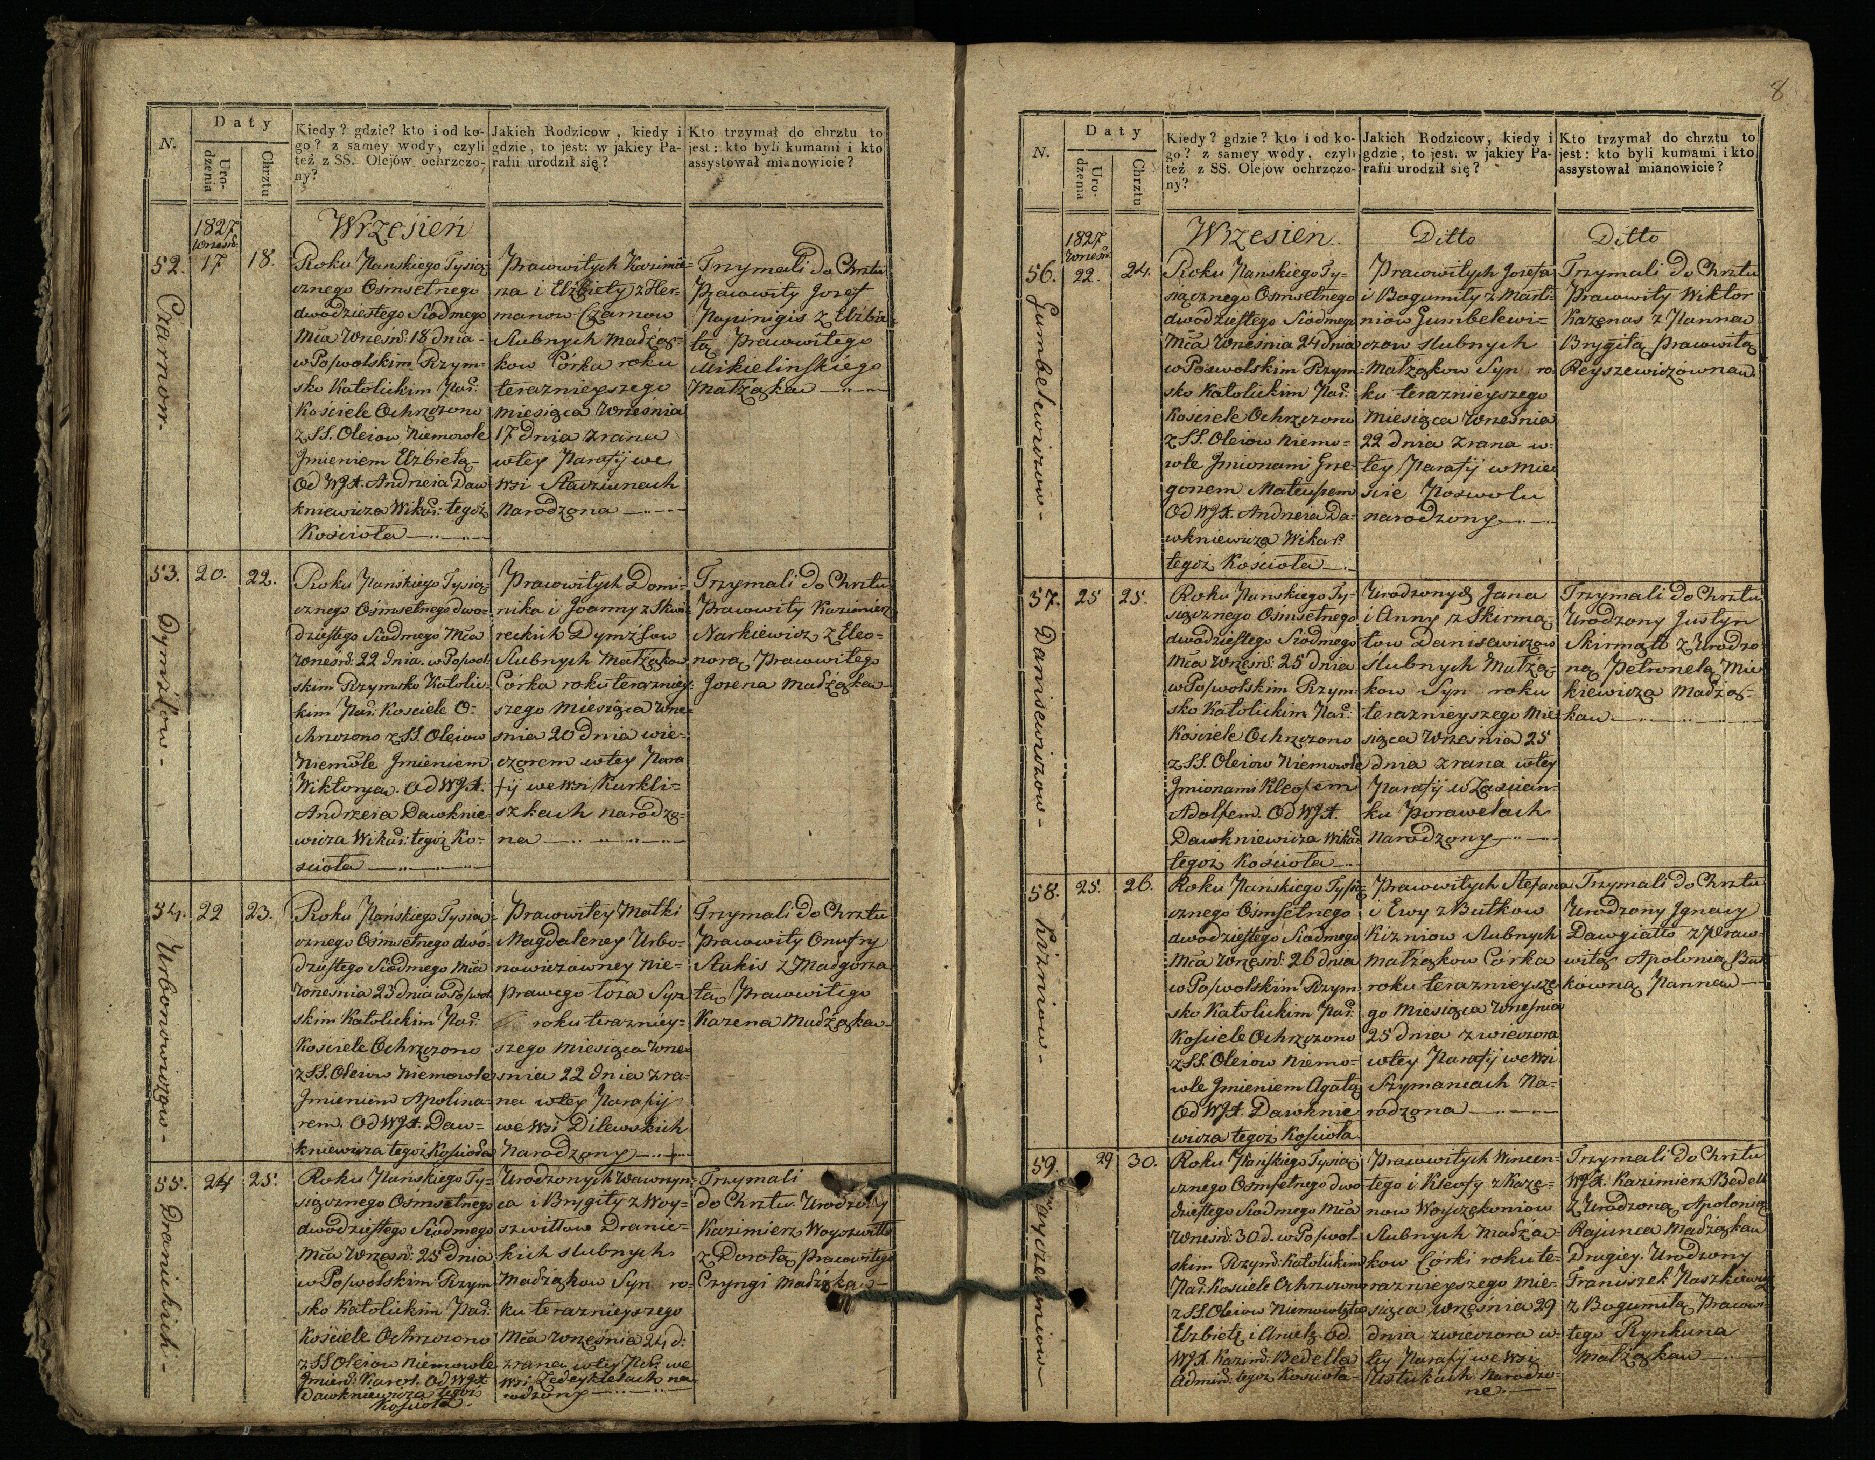 8
N.
Daty
Urodzenia
Chrztu
Kiedy? gdzie? kto i od ko-
go? z samey wody, czyli
też z SS. Olejów ochrzczo-
ny?
Jakich Rodzicow, kiedy i
gdzie, to jest: w jakiey Pa-
rafii urodził się?
Kto trzymał do chrztu to
jest: kto byli kumami i kto
assystował mianowicie?
1827
Wrzesń.
Wrzesień
52.
17
18.
Czarnow.
Roku Panskiego Tysią-
cznego Osmsetnego
dwódziestego Siódmego
Mca Wrześń. 18 dnia
w Poswolskim Rzym-
sko Katolickim Par.
Kosciele Ochrzczono
z SS. Oleiow Niemowle
Jmieniem Elżbietą
Od WJX. Andrzeia Daw
kniewicza Wikar. tegoż
Kościoła
Prawowitych Kazimie-
rza i Elżbiety z Her-
manow Czarnow
Slubnych Małżąn-
kow Córka roku
teraznieyszego
Miesiąca Wrzesnia
17 dnia zrana
wtey Parafij we
wsi Stacziunach
Narodzona
Trzymali do Chrztu
Prawowity Jozef
Papinigis z Elżbie-
tą Prawowitego
Mikielinskiego
Małżąka
53.
20.
22.
Dymszow
Roku Pańskiego Tysią-
cznego Ośmsetnego dwo-
dziestego Siodmego Mca
Wrzesń. 22 dnia w Poswol-
skim Rzymsko Katolic-
kim Par. Kosciele O-
chrzczono z SS. Oleiow
Niemowle Jmieniem
Wiktorya. Od WJX.
Andrzeia Dawknie-
wicza Wikar. tegoż Ko-
scioła
Prawowitych Domi-
nika i Joanny z Skwa-
reckich Dymżlow
Slubnych Małżąkow
Córka roku teraznièy-
szego Miesiąca Wrze-
śnia 20 dnia wie-
czorem wtey Para
fij we wsi Kurkli-
szkach narodzo-
na
Trzymali do Chrztu
Prawowity Kazimierz
Narkiewicz z Eleo-
norą Prawowitego
Jozena Małżąka
54.
22
23.
Urbonowiczow
Roku Pańskiego Tysią-
cznego Ośmsetnego dwó-
dziestego Siodmego Mca
Wrzesnia 23 dnia w Poswol
skim Katolickim Par.
Kosciele Ochrzczono
z SS. Oleiow Niemowle
Jmieniem Apolina-
rem. Od WJX. Daw-
kniewicza tegoż Kościoła
Prawowitey Matki
Magdaleney Urbo-
nowiczowney Nie-
prawego łoza Syn
roku terazniey-
szego Miesiąca Wrze-
snia 22 dnia zra-
na wtey Parafij
we wsi Dilewskich
Narodzony
Trzymali do Chrztu
Prawowity Onufry
Stukis z Małgorza-
tą Prawowitego
Kazena Małżąka
55.
24
25.
Dranickich
Roku Pańskiego Ty-
siącznego Osmsetnego
dwodziestego Siodmego
Mca Wrzesń. 25 dnia
w Poswolskim Rzym
sko Katolickim Par.
Kościele Ochrzczono
z SS Oleiow Niemowle
Jmień. Karol. Od WJX
Dawkniewicza tegoż
Kościoła.
Urodzonych Wawrzyn-
ca i Brygity z Woy-
szwiłłow Dranic-
kich slubnych
Małżąkow Syn ro-
ku teraznieyszego
Mca Wrzesnia 24 d.
zrana wtey Par. we
wsi Zedeykielach na
rodzony
Trzymali
do Chrztu Urodzony
Kazimierz Woyszwiłło
z Dorotą Prawowitego
Czyngi Małżąka
N.
Daty
Urodzenia
Chrztu
Kiedy? gdzie? kto i od ko-
go? z samey wody, czyli
też z SS. Olejów ochrzczo-
ny?
Jakich Rodzicow, kiedy i
gdzie, to jest. w jakiey Pa-
rafii urodził się?
Kto trzymał do chrztu to
jest: kto byli kumami i kto
assystował mianowicie?
1827
Wrzesń.
Wrzesień.
Ditto
Ditto
56.
22.
24.
Gumbelewiczow
Roku Panskiego Ty-
siącznego Osmsetnego
dwódziestego Siódmego
Mca Wrzesnia 24 dnia
w Poswolskim Rzym-
sko Katolickim Par.
Kosciele Ochrzczono
z SS. Oleiow Niemo-
wle Jmionami Grze-
gorzem Mateuszem
Od WJX. Andrzeia Da-
wkniewicza Wikar.
tegoż Kościoła
Prawowitych Jozefa
i Bogumiły z Marti-
niow Gumbelewi-
czow slubnych
Małżąkow Syn ro
ku teraznieyszego
Miesiąca Wrzesnia
22 dnia zrana w-
tey Parafij w Mie-
scie Poswolu
narodzony
Trzymali do Chrztu
Prawowity Wiktor
Kazenas z Panna
Brygitą Prawowitą
Reyszewiczówna
57.
25
25.
Danisewiczow
Roku Panskiego Ty-
siącznego Osmsetnego
dwodziestego Siodmego
Mca Wrzesń. 25 dnia
w Poswolskim Rzym-
sko Katolickim Par.
Kosciele Ochrzczono
z SS. Oleiow Niemowle
Jmionami Kleofasem
Adolfem. Od WJX.
Dawkniewicza Wikar.
tegoż Kościoła
Urodzonych Jana
i Anny z Skirmą-
tow Danisewiczow
Ślubnych Małżą-
kow Syn roku
teraznieyszego Mie-
siąca Wrzesnia 25
dnia zrana wtey
Parafij w Zascian-
ku Porawelach
Narodzony
Trzymali do Chrztu
Urodzony Justyn
Skirmątt z Urodzo-
ną Petronelą Mic
kiewicza Małżąn-
ka
58.
25.
26.
Kizniow
Roku Pańskiego Tysią-
cznego Osmsetnego
dwodziestego Siodmego
Mca Wrzesń. 26 dnia
w Poswolskim Rzym
sko Katolickim Par.
Kościele Ochrzczono
z SS. Oleiow Niemo-
wle Jmieniem Agatą
Od WJX. Dawknie
wicza tegoż Kościoła
Prawowitych Stefana
i Ewy z Butkow
Kizniow slubnych
Małżąkow Córka
roku teraznieysze
go Miesiąca Wrzesnia
25 dnia z wieczora
wtey Parafij we wsi
Szymaniach Na-
rodzona
Trzymali do Chrztu
Urodzony Ignacy
Dawgiałło z Praw-
witą Apolonią But
kówną Panna
59.
29
30.
Roku Pańskiego Tysią-
cznego Osmsetnego dwo
dziestego Siodmego Mca
Wrzesń. 30 d. w Poswol
skim Rzym. Katolickim
Par. Kosciele Ochrzczono
z SS. Oleiow Niemowlęta
Elzbietę i Anielę Od
WJX. Kazim. Bedella
Admin. tegoż Kosciola
Prawowitych Wincen-
tego i Kleofy z Kaze-
now Woyczekoniow
Slubnych Małżą-
kow Córki roku te-
raznieyszego Mie-
siąca Wrzesnia 29
dnia z wieczora w-
tey Parafij we wsi
Ustukach Narodzo-
ne.
Trzymali do Chrztu
WJX. Kazimierz Bedell
z Urodzoną Apolonią
Rajunca Małżąka
Drugiey. Urodzony
Franciszek Paszkiewicz
z Bogumiłą Prawow-
tego Rynkuna
Małżąka